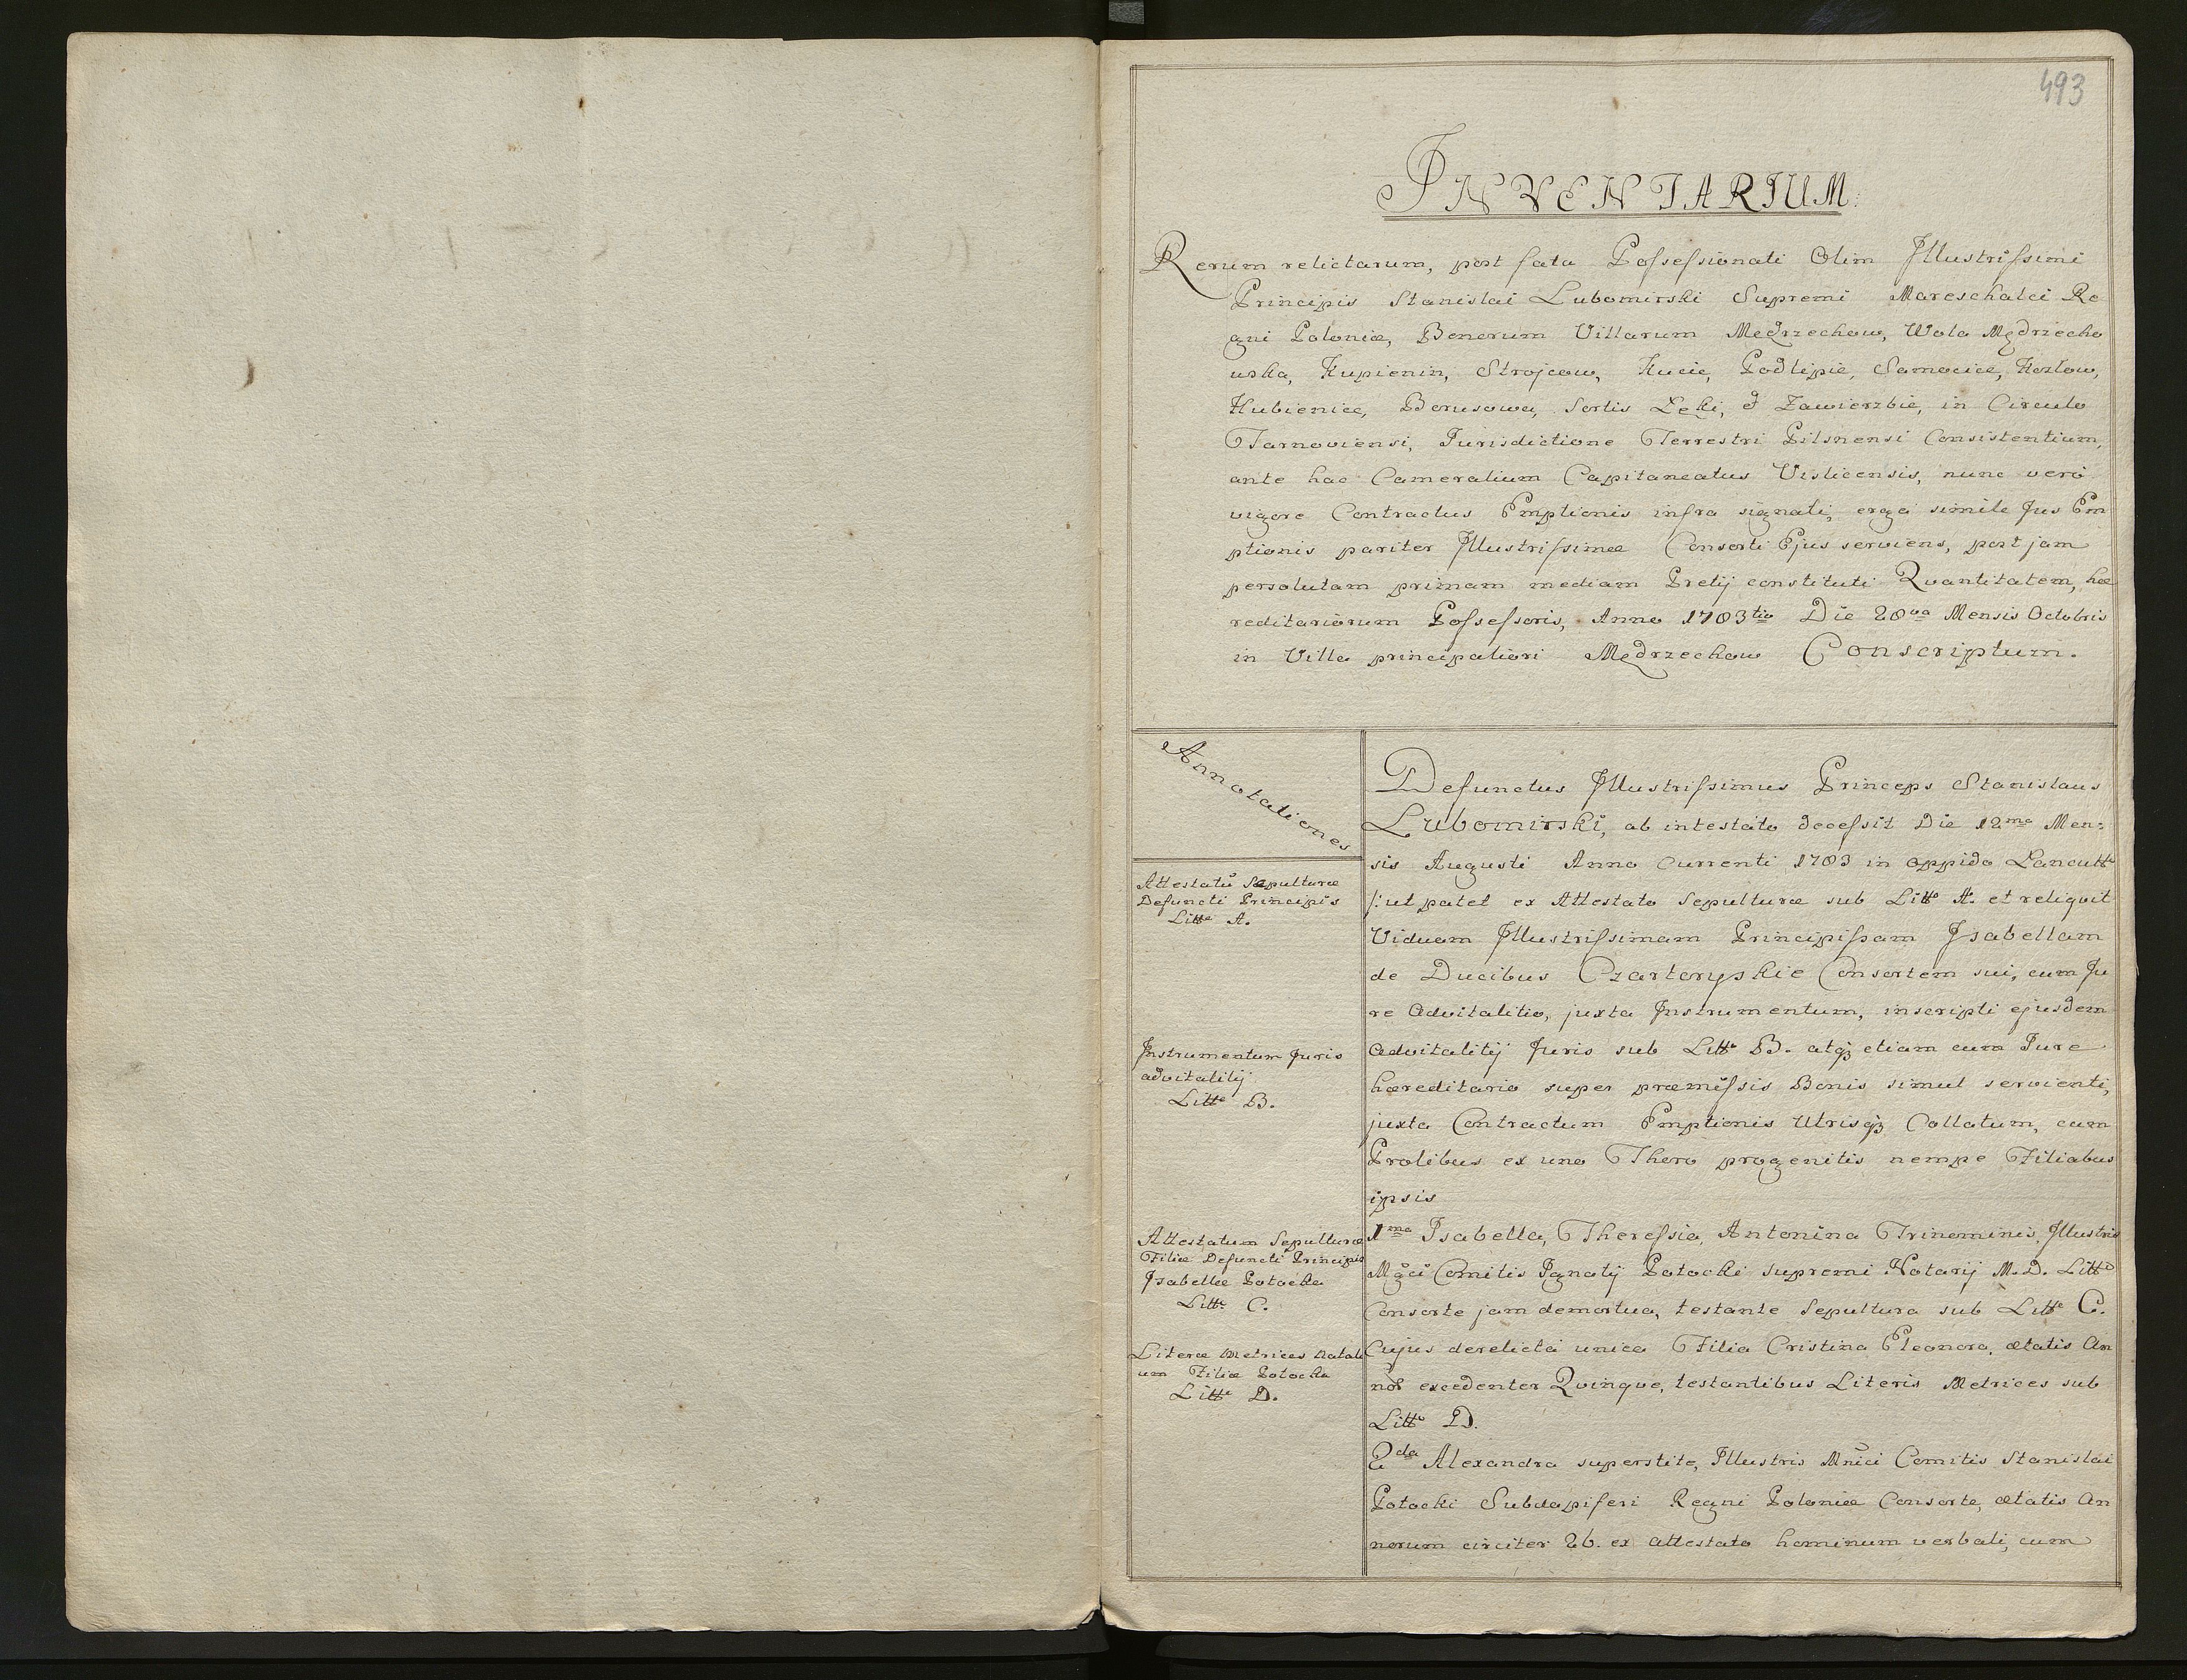 493
INVENTARIUM.
Rerum relictarum, post fata Possessionati Olim Illustrissimi
Principis Stanislai Lubomirski Supremi Mareschalci Re
gni Poloniæ, Bonorum Villarum Mędrzechow, Wola Mędrzecho
wska, Kupienin, Strojcow, Kucie, Podlipie, Samocice, Kozlow,
Hubienice, Borusowa, Sortis Lęki, & Zawierzbie, in Circulo
Tarnoviensi, Jurisdictione Terrestri Pilsnensi Consistentium,
ante hac Cameralium Capitaneatus Vislicensis, nunc vero
vigore Contractus Emptionis infra signati, erga simile Jus Em
ptionis pariter Illustrissimæ Consorti Ejus serviens, post jam
persolutam primam mediam Pretij constituti Quantitatem, hæ
reditariorum Possessoris, Anno 1783tio Die 28va Mensis Octobris
in Villa principaliori Mędrzechow Conscriptum.
Annotationes
Defunctus Illustrissimus Princeps Stanislaus
Lubomirski, ab intestato decessit Die 12ma Men:
sis Augusti Anno Currenti 1783 in oppido Lancutt
/: ut patet ex Attestato Sepulturæ sub Litt: A. et reliquit
Viduam Illustrissimam Principissam Isabellam
de Ducibus Czartoryskie Consortem sui, cum Ju
re Advitalitio, juxta Instrumentum, inscripti ejusdem
advitalitij Juris sub Litt: B. atq3 etiam cum Jure
hæreditario super præmissis Bonis simul servienti,
juxta Contractum Emptionis Utrisq3 Collatum, cum
Prolibus ex uno Thoro progenitis nempe Filiabus
ipsis
1ma Isabella, Theressia, Antonina Trinominis, Illustris
Mgci Comitis Ignatij Potocki supremi Notarij M. D. Litt:
Consorte jam demortua, testante Sepultura sub Litt: C.
Cujus derelicta unica Filia Cristina Eleonora, ætatis An
nos excedenter Quinque, testantibus Literis Metrices sub
Litt: D.
2da Alexandra superstite, Illustris Mnici Comitis Stanislai
Potocki Subdapiferi Regni Poloniæ Consorte, ætatis An
norum circiter 26. ex attestato hominum verbali, cum
Attestatũ Sepulturæ
Defuncti Principis
Litt: A.
Instrumentum Juris
advitalitij
Litt: B.
Attestatum Sepulturæ
Filiæ Defuncti Principis
Isabellæ Potocka
Litt: C.
Literæ Metrices Natali
um Filiæ Potocka
Litt: D.